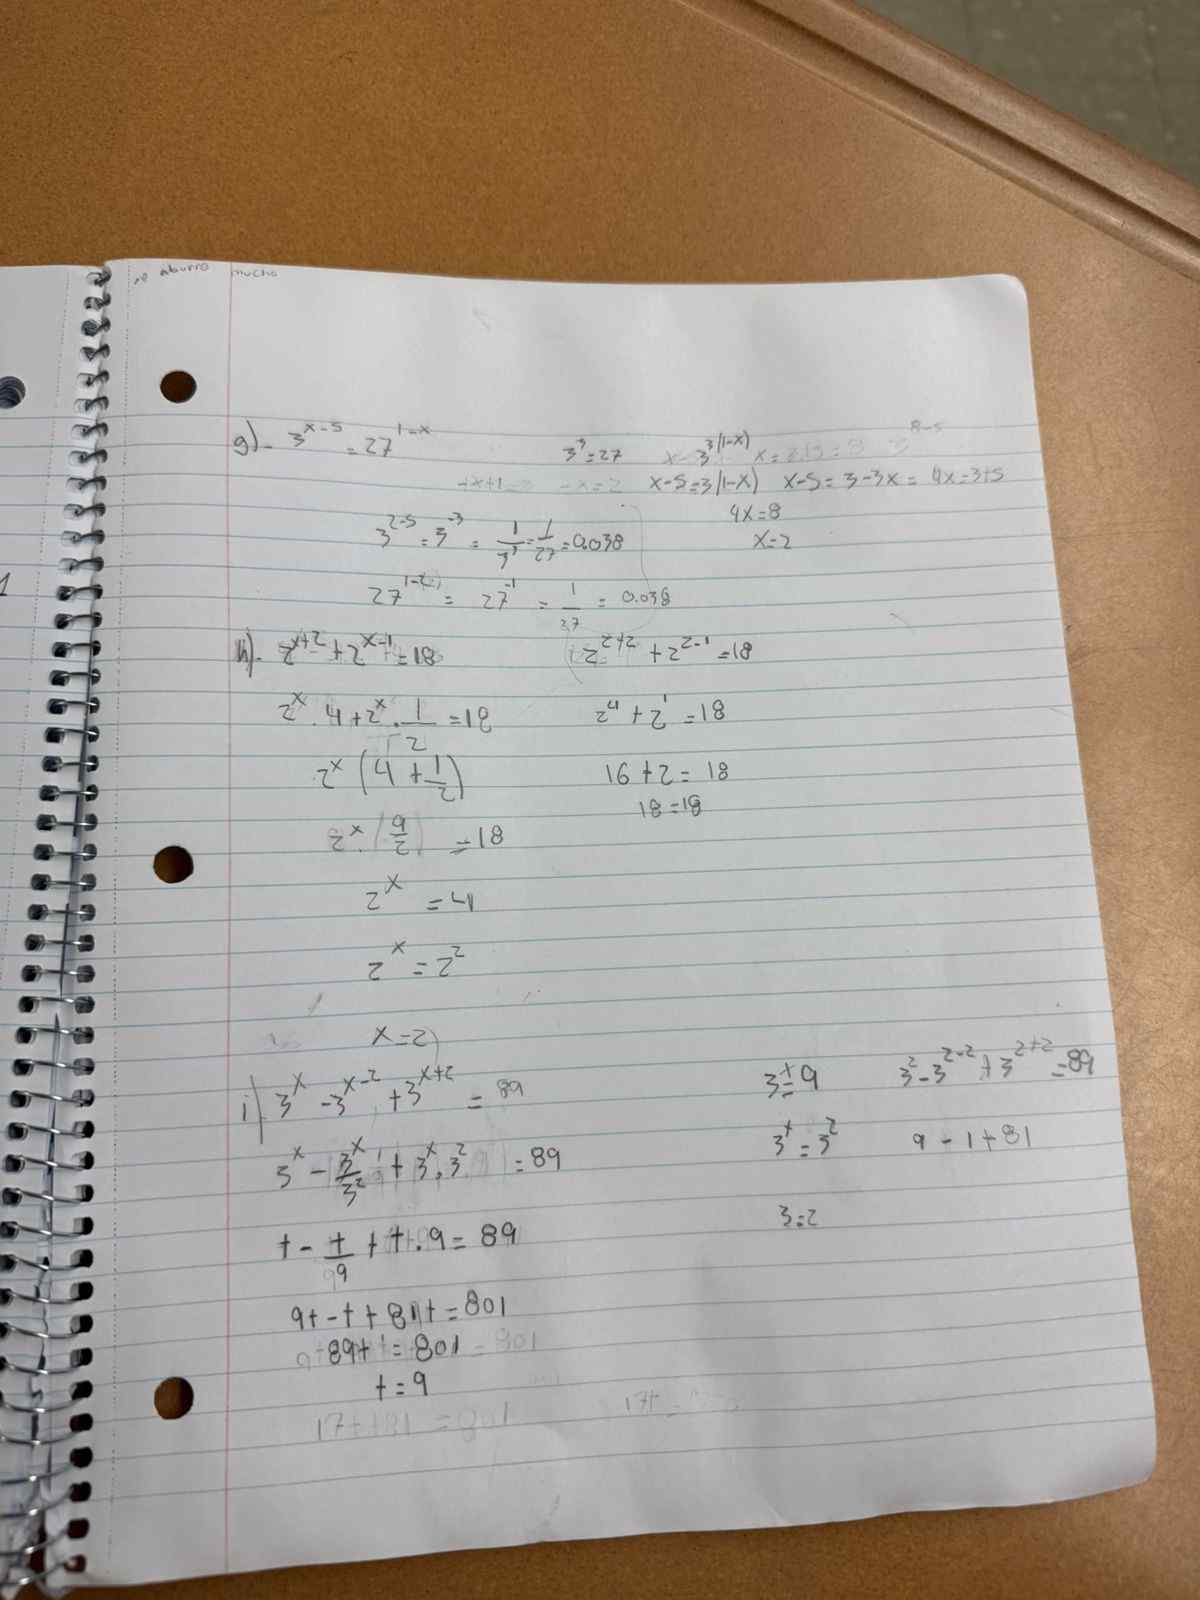 me aburro mucho
g)- 3^{x-5} = 27^{1-x} 3^3=27 3^{3(1-x)}
x-5=3(1-x) x-5=3-3x= 4x=3+5
4x=8
3^{2-5} = 3^{-3} = 1/3^3 = 1/27 = 0.038 x=2
27^{1-2} = 27^{-1} = 1/27 = 0.038
h)- 2^{x+2} + 2^{x-1} = 18 2^{2+2} + 2^{2-1} = 18
2^x · 4 + 2^x · 1/2 = 18 2^4 + 2^1 = 18
2^x (4 + 1/2) 16 + 2 = 18
18=18
2^x · (9/2) = 18
2^x = 4
2^x = 2^2
x=2
i) 3^x - 3^{x-2} + 3^{x+2} = 89 3^x = 9 3^2 - 3^{2-2} + 3^{2+2} = 89
3^x - 3^x/3^2 + 3^x · 3^2 = 89 3^x = 3^2 9 - 1 + 81
3=2
t - t/9 + t · 9 = 89
9t - t + 81t = 801
89t = 801
t = 9
17t + 81 = 801